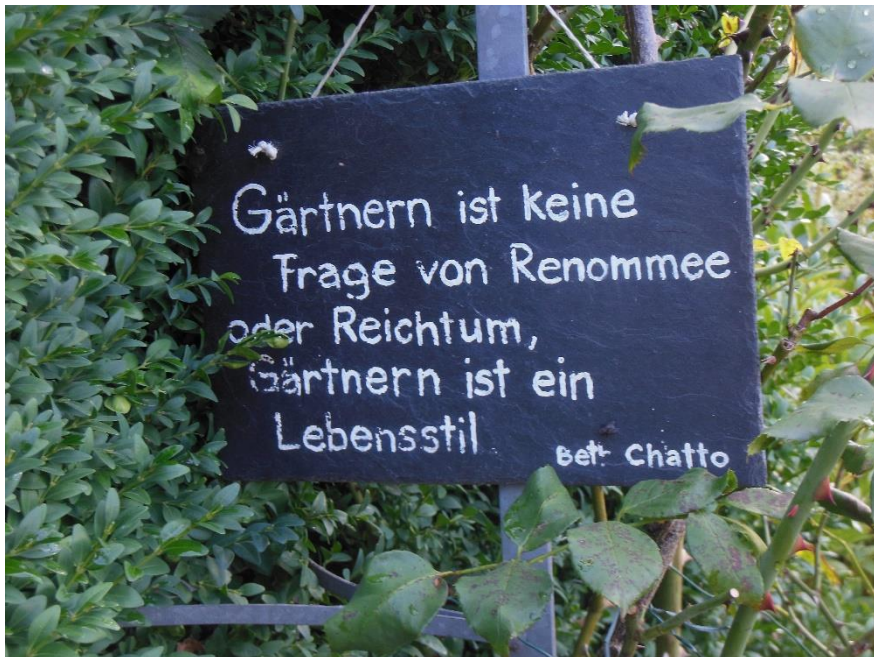 Gärtnern ist keine
Frage von Renommee
oder Reichtum,
Gärtnern ist ein
Lebensstil
Chatto